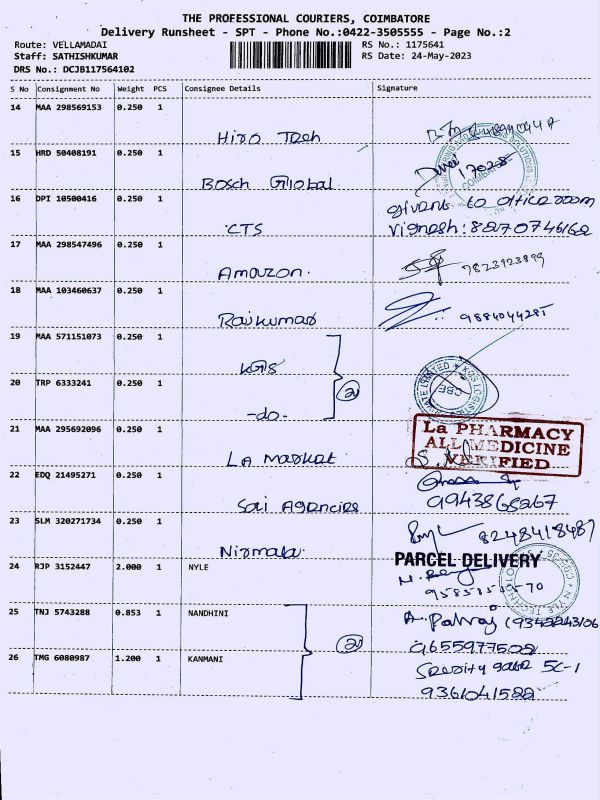 THE PROFESSIONAL COURIERS, COIMBATORE
Delivery Runsheet - SPT - Phone No.:0422-3505555 - Page No.:2
Route: VELLAMADAI RS No.: 1175641
Staff: SATHISHKUMAR RS Date: 24-May-2023
DRS No.: DCJB117564102
S No Consignment No Weight PCS Consignee Details Signature
14 MAA 298569153 0.250 1
Hiro Tech
15 HRD 50408191 0.250 1
Bosch Global
16 DPI 10500416 0.250 1 givant to office room
CTS Vignesh: 8870746162
17 MAA 298547496 0.250 1
Amazon. 7823923899
18 MAA 103460637 0.250 1
Rajkumar 9884044285
19 MAA 571151073 0.250 1
KGIS
20 TRP 6333241 0.250 1 2
-do-
21 MAA 295692096 0.250 1 La PHARMACY
ALL MEDICINE
LA market VERIFIED
22 EDQ 21495271 0.250 1
Sai Agencies 9943868267
23 SLM 320271734 0.250 1
Nirmala. 8248418487
24 RJP 3152447 2.000 1 NYLE PARCEL DELIVERY
25 TNJ 5743288 0.853 1 NANDHINI A. Palraj
2 9655977502
26 TMG 6080987 1.200 1 KANMANI gate 5C-1
9361041522